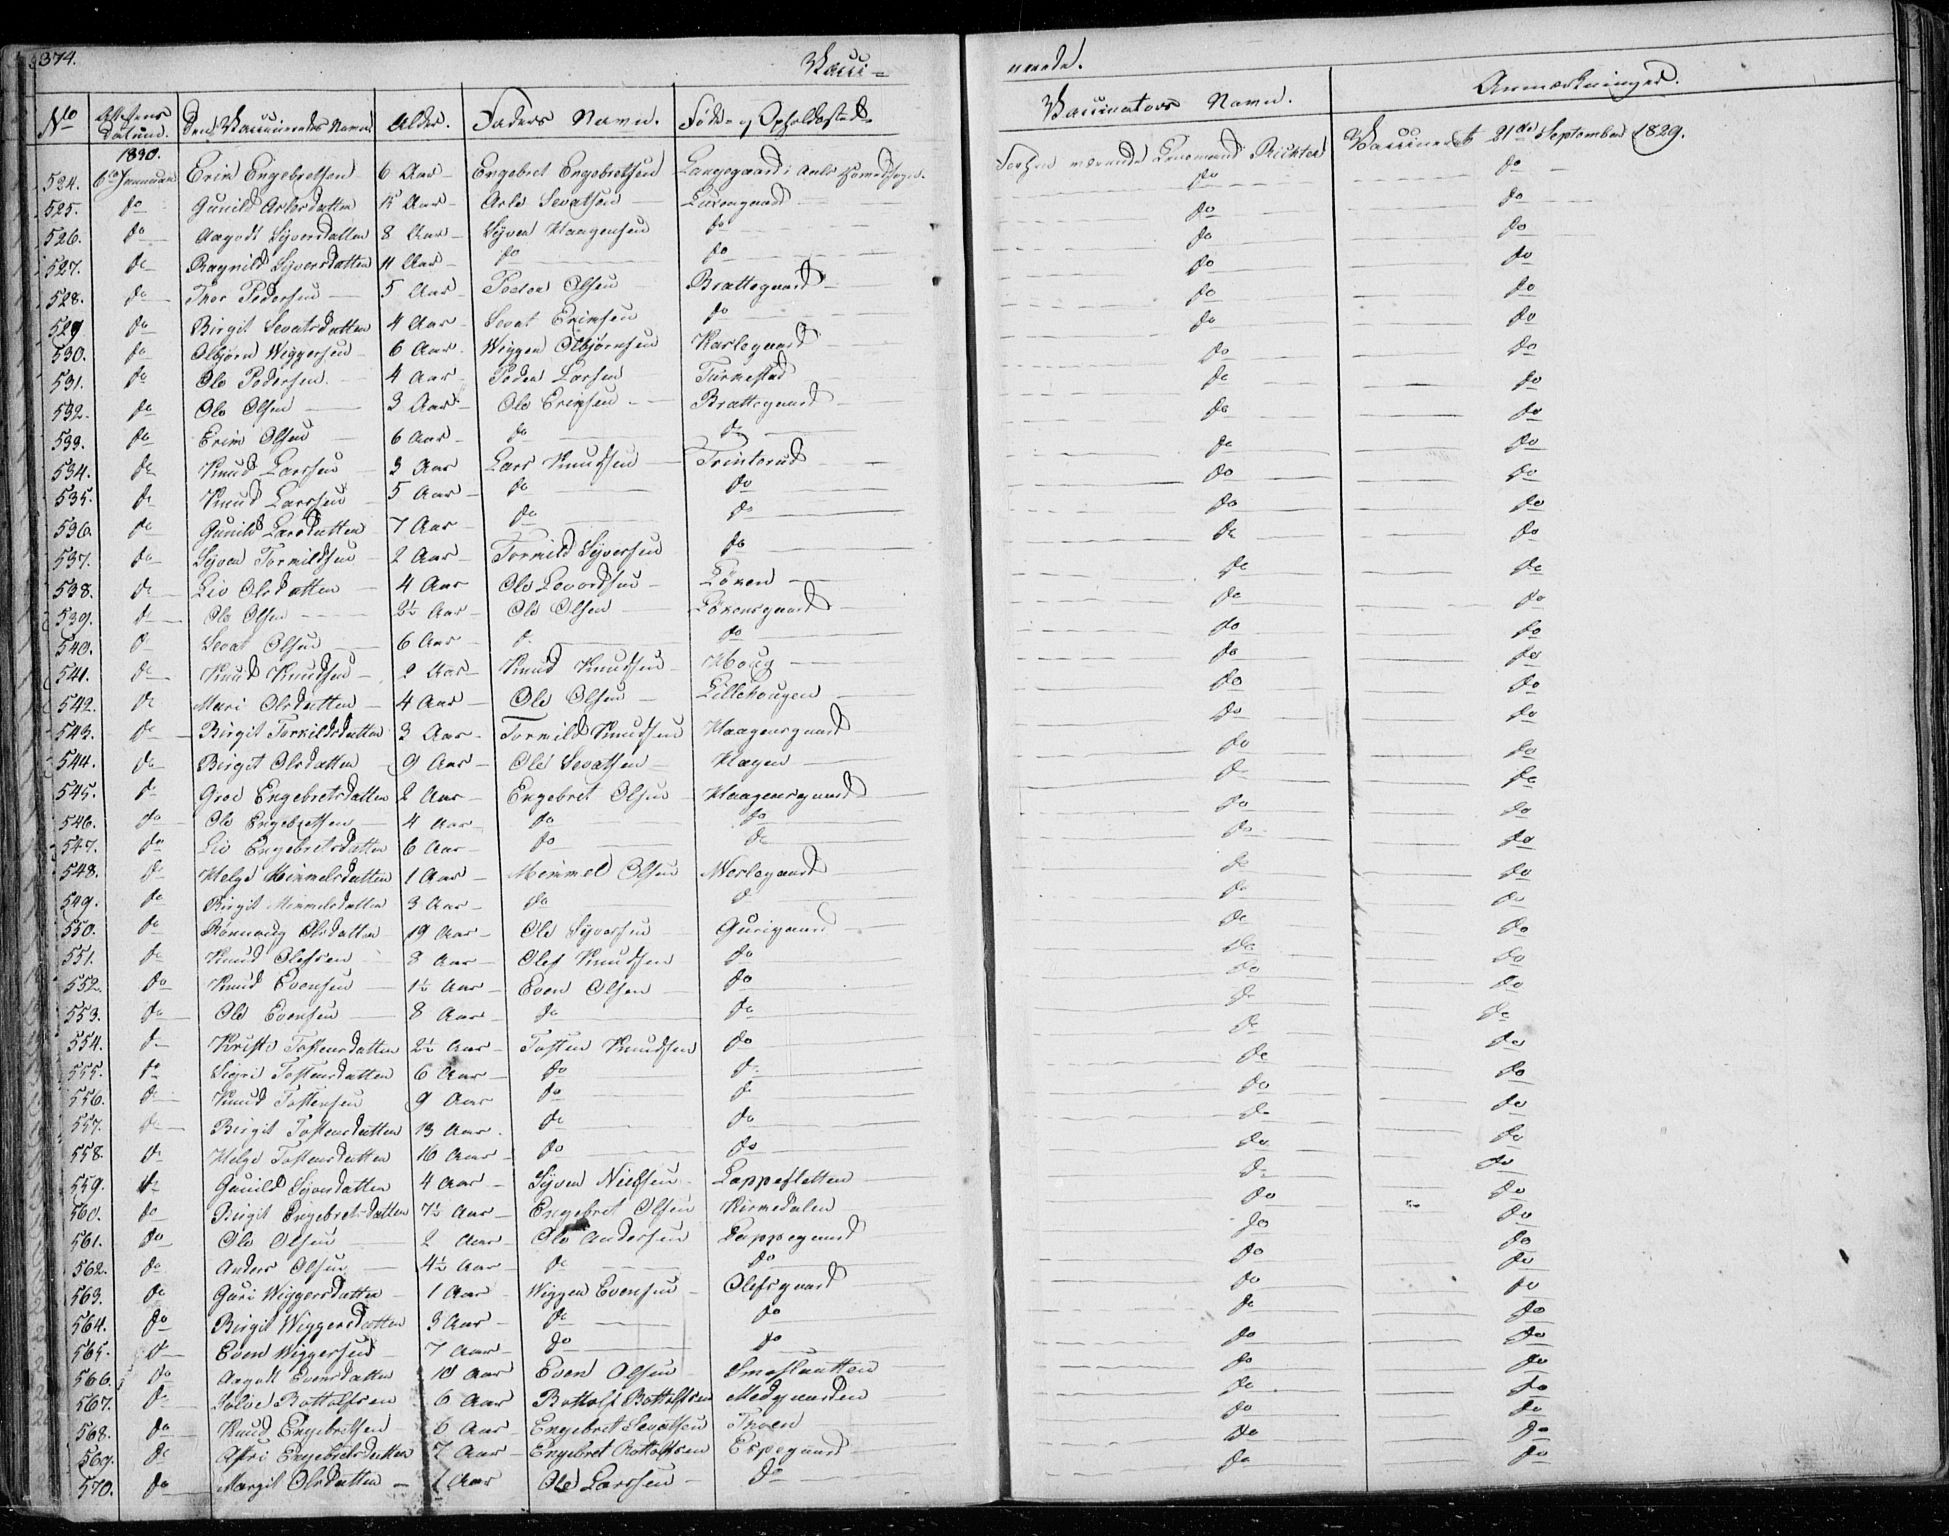 374. Vacci- nerede.
No Attestens Datum. Den Vaccineredes Navn Alder. Faders Navn. Føde- og Opholdssted. Vaccinateurs Navn. Anmærkninger.
1830.
524. 6te Januar Erik Engebretsen 6 Aar Engebret Engebretsen Langegaard i Aals Hovedsogn. Forhenværende Lensmand Richter Vaccineret 21de September 1829.
525. do Gunild Arlesdatter Aar Arle Sevatsen do do
526. do Aagodt Syversdatter 8 Aar Syver Haagensen do do do
527. do Ragnild Syversdatter 11 Aar do do do do
528. do Thor Pedersen 5 Aar Peder Olsen Brattegaard do do
529 do Birgit Sevatsdatter 4 Aar Sevat Eriksen do do do
530. do Olbjørn Wiggersen 6 Aar Wigger Olbjørnsen Karlegaard do do
531. do Ole Pedersen 4 Aar Peder Larsen do do
532. do Ole Olsen 3 Aar Ole Eriksen Brattegaard do do
533. do Erik Olsen 6 Aar do do do do
534. do Knud Larssen 3 Aar Lars Knudsen Trinterud do do
535. do Knud Larssen 5 Aar do do do do
536. do Gunild Larsdatter 7 Aar do do do do
537. do Syver Torkildsen 2 Aar Torkild Syversen do do do
538. do Liv Olsdatter 4 Aar Ole Levordsen Løken do do
539. do Ole Olsen 2½ Aar Ole Olsen Løkensgaard do do
540. do Sevat Olsen 6 Aar do do do do
541. do Knud Knudsen 2 Aar Knud Knudsen Houg do do
542. do Mari Olsdatter 4 Aar Ole Olsen Lillehougen do do
543. do Birgit Torkildsdatter 3 Aar Torkild Knudsen Haagensgaard do do
544. do Birgit Olsdatter 9 Aar Ole Sevatsen Hagen do do
545. do Groe Engebretsdatter 2 Aar Engebret Olsen Haagensgaard do do
546. do Ole Engebretsen 4 Aar do do do do
547. do Liv Engebretsdatter 6 Aar do do do do
548. do Helge Himmelsdatter 1 Aar Himmel Olsen Nerlegaard do do
549. do Birgit Himmelsdatter 3 Aar do do do do
550. do Rønnoug Olsdatter 19 Aar Ole Syversen Gurigaard do do
551. do Knud Olefsen 8 Aar Olef Knudsen do do do
552. do Knud Evensen 1½ Aar Even Olsen do do do
553. do Ole Evensen 8 Aar do do do do
554. do Kristi Tostensdatter 2½ Aar Tosten Knudsen do do do
555. do Sigri Tostensdatter 6 Aar do do do do
556. do Knud Tostensen 9 Aar do do do do
557. do Birgit Tostensdatter 13 Aar do do do do
558. do Helge Tostensdatter 16 Aar do do do do
559. do Gunild Syversdatter 4 Aar Syver Nielsen Lappesletten do do
560. do Birgit Engebretsdatter 7½ Aar Engebret Olsen Kirkedalen do do
561. do Ole Olsen 2 Aar Ole Andersen Lappegaard do do
562. do Anders Olsen 4½ Aar do do do do
563. do Guri Wiggersdatter 1 Aar Wigger Evensen Olefsgaard do do
564. do Birgit Wiggersdatter 3 Aar do do do do
565. do Even Wiggersen 7 Aar do do do do
566. do Aagodt Evensdatter 10 Aar Even Olsen do do
567. do Bottolfsen 6 Aar Bottolf Bottolfsen Medgaarden do do
568. do Knud Engebretsen 6 Aar Engebret Sevatsen do do
569. do Engebretsdatter 7 Aar Engebret Bottolfsen Espegaard do do
570. do Margit Olsdatter 1 Aar Ole Larssen do do do